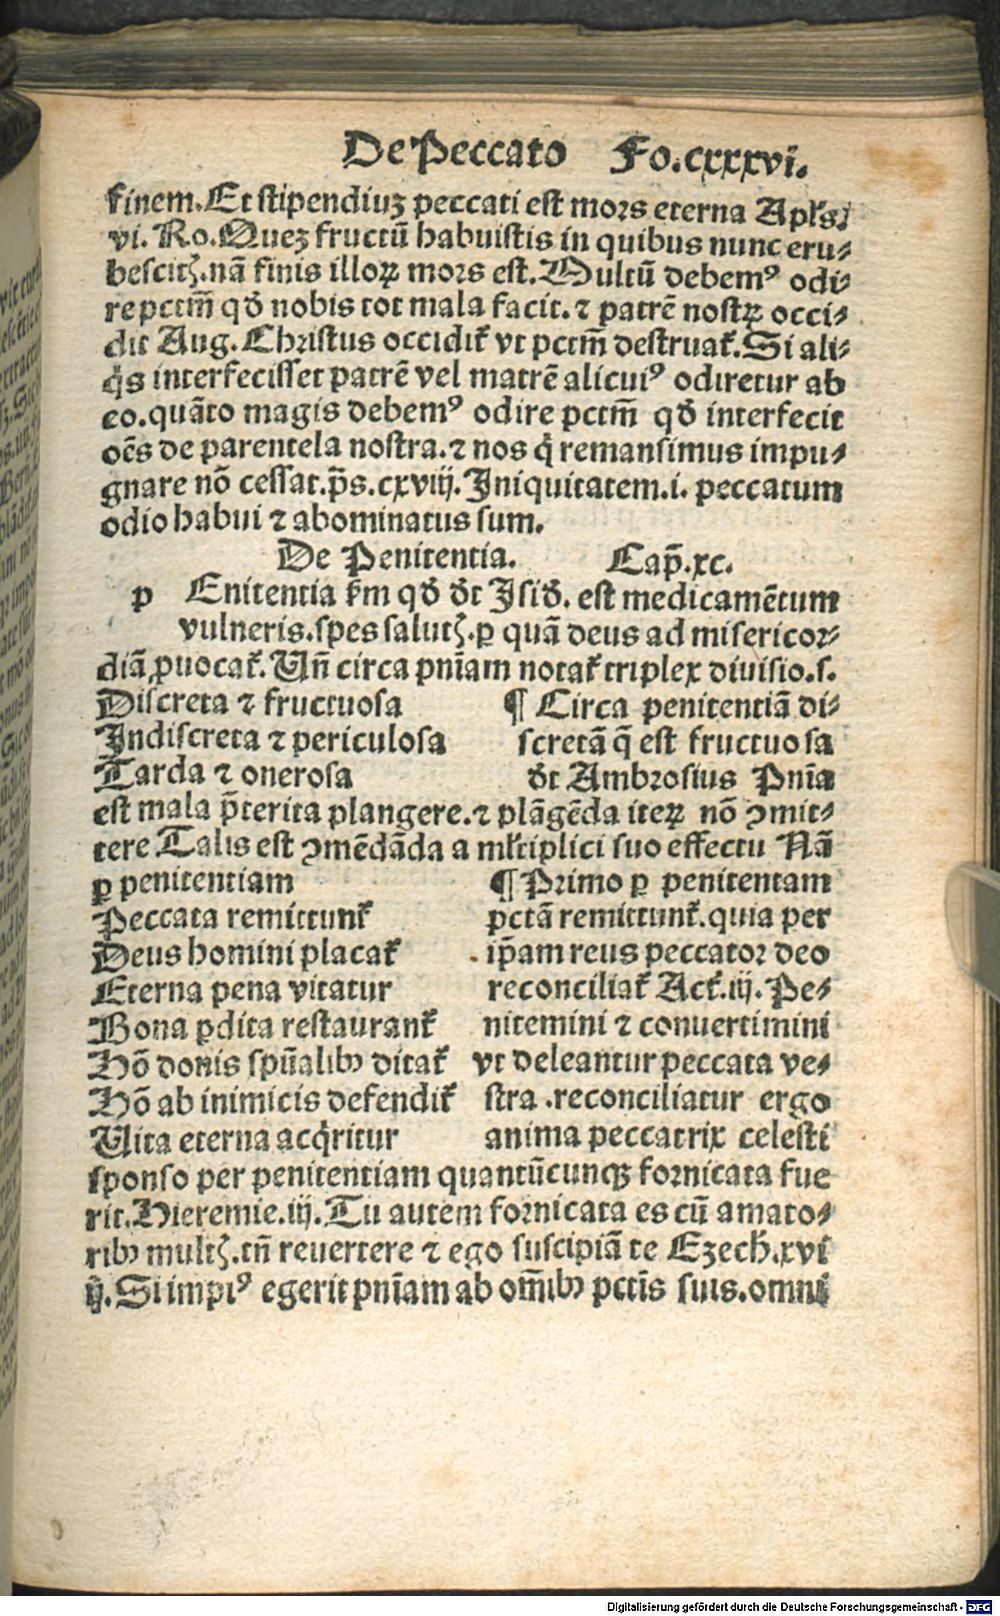 De Peccato Fo.cxxxvi.
finem. Et stipendiuʒ peccati est mors eterna Apl's.
vi. Ro. Queʒ fructū habuistis in quibus nunc eru⸗
bescitꝭ. nā finis illoꝝ mors est. Multū debemꝰ odi⸗
re pctm̄ qđ nobis tot mala facit. ⁊ patrē nostꝝ occi⸗
dit Aug. Christus occidit᷑ vt pctm̄ destruat᷑. Si ali⸗
q̇s interfecisset patrē vel matrē alicuiꝰ odiretur ab
eo. quāto magis debemꝰ odire pctm̄ qđ interfecit
oēs de parentela nostra. ⁊ nos q̇ remansimus impu⸗
gnare nō cessat. p̄s. cxviij. Iniquitatem .i. peccatum
odio habui ⁊ abominatus sum.
De Penitentia. Cap̄. xc.
p Enitentia ẜm qđ đt Isiđ. est medicamētum
vulneris. spes salutꝭ. ꝑ quā deus ad misericor⸗
diā ꝓuocat᷑. Vn̄ circa pn̄iam notat᷑ triplex diuisio .s.
Discreta ⁊ fructuosa
Indiscreta ⁊ periculosa
Tarda ⁊ onerosa
¶ Circa penitentiā di⸗
scretā q̄ est fructuosa
đt Ambrosius Pn̄ia
est mala p̄terita plangere. ⁊ plāgēda iteꝝ nō ꝯmit⸗
tere Talis est ꝯmēdāda a ml'tiplici suo effectu Nā
ꝑ penitentiam
Peccata remittunt᷑
Deus homini placat᷑
Eterna pena vitatur
Bona ꝑdita restaurant᷑
Hō donis spūalibꝰ ditat᷑
Hō ab inimicis defendit᷑
Vita eterna acq̇ritur
¶ Primo ꝑ penitentam
pctā remittunt᷑. quia per
ip̄am reus peccator deo
reconciliat᷑ Act᷑. iij. Pe⸗
nitemini ⁊ conuertimini
vt deleantur peccata ve⸗
stra . reconciliatur ergo
anima peccatrix celesti
sponso per penitentiam quantūcunqꝫ fornicata fue
rit. Hieremie. iij. Tu autem fornicata es cū amato⸗
ribꝰ multꝭ. tn̄ reuertere ⁊ ego suscipiā te Eʒech̄. xvi
ij. Si impiꝰ egerit pn̄iam ab om̄ibꝰ pctīs suis. omni
Digitalisierung gefördert durch die Deutsche Forschungsgemeinschaft - DFG